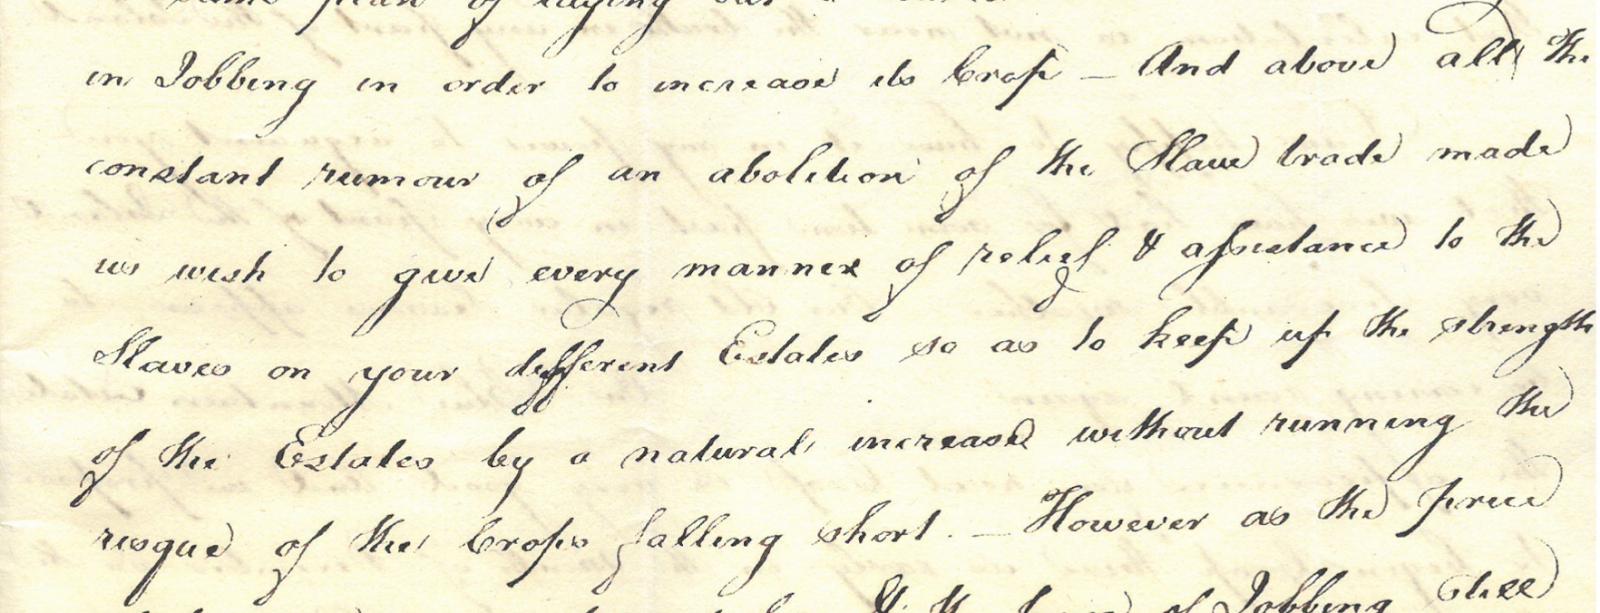 same plan of laying out
in Jobbing in order to increase its Crop – And above all the
constant rumour of an abolition of the Slave trade made
us wish to give every manner of relief & assistance to the
Slaves on your different Estates so as to keep up the strength
of the Estates by a natural increase without running the
risque of the Crops falling short. – However as the price
of Jobbing